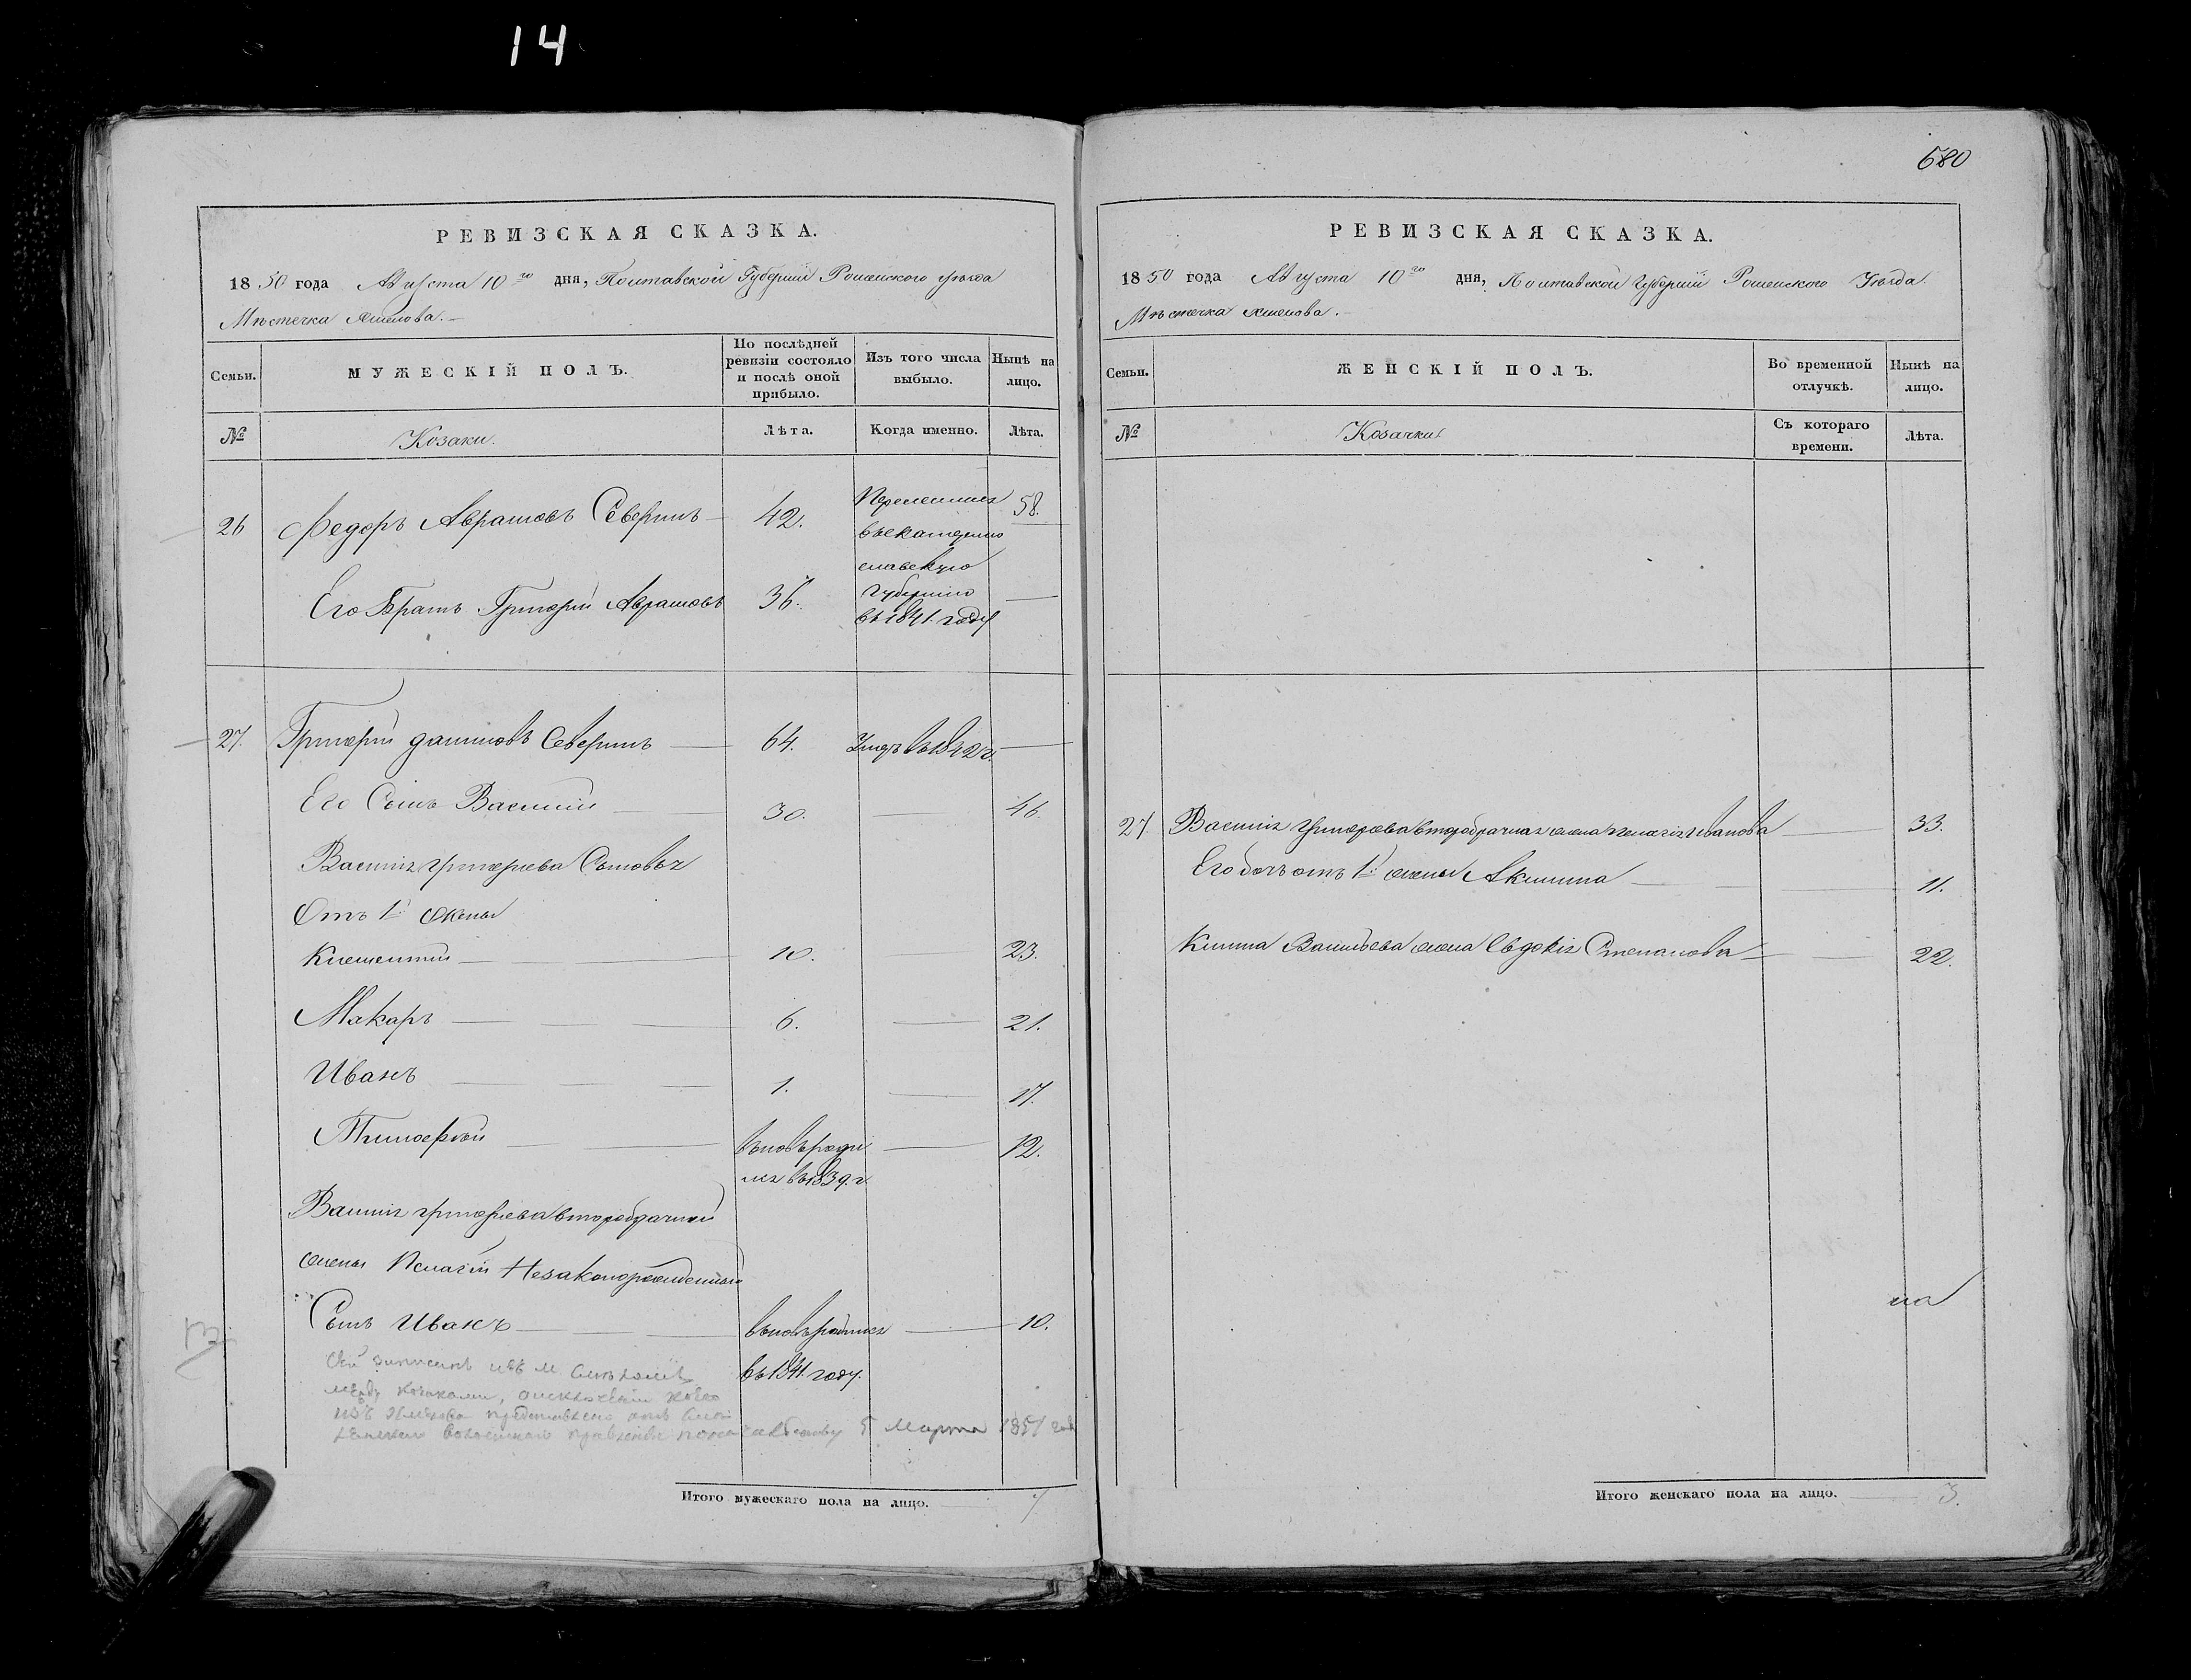 14
680
РЕВИЗСКАЯ СКАЗКА.
1850 года Августа 10го дня, Полтавской Губерніи Роменского уѣзда
Мѣстечка Хмелова.
Семьи. МУЖЕСКІЙ ПОЛЪ. По послѣдней ревизіи состояло и послѣ оной прибыло. Изъ того числа выбыло. Нынѣ на лицо.
№ Козаки. Лѣта. Когда именно. Лѣта.
26 Федоръ Аврамовъ Северинъ 42. Перечислен 58.
въ екатерино
славскую
Его Братъ Григорій Аврамовъ 36. Губернію
въ 1841 году
27. Григорій Даниловъ Северинъ 64. Умеръ въ 1842 г.
Его Сынъ Василій 30. 46.
Василія Григорьева Сыновья
Отъ 1й жены
Климентій 10. 23.
Макаръ 6. 21.
Иванъ 1. 17.
Тимофѣй вновь роди 12.
лся въ 1839 г
Василія Григорьева второбрачной
жены Пелагіи Незаконрожденный
Сынъ Иванъ вновь родился 10.
въ 1841 году.
Сей записанъ изъ м.
между козаками,
изъ Хмелова представлено
волостнаго правленія 5 Марта 1851 года
Итого мужескаго пола на лицо. 7
РЕВИЗСКАЯ СКАЗКА.
1850 года Августа 10го дня, Полтавской Губерніи Роменского Уѣзда.
Мѣстечка Хмелова.
Семьи. ЖЕНСКІЙ ПОЛЪ. Во временной отлучкѣ. Нынѣ на лицо.
№ Козачки Съ котораго времени. Лѣта.
27. Василія Григорева второбрачная жена Пелагія Иванова 33.
Его дочь отъ 1й жены Акилина 11.
Клима Васильева жена Евдокія Степанова 22.
на
Итого женскаго пола на лицо. 3.